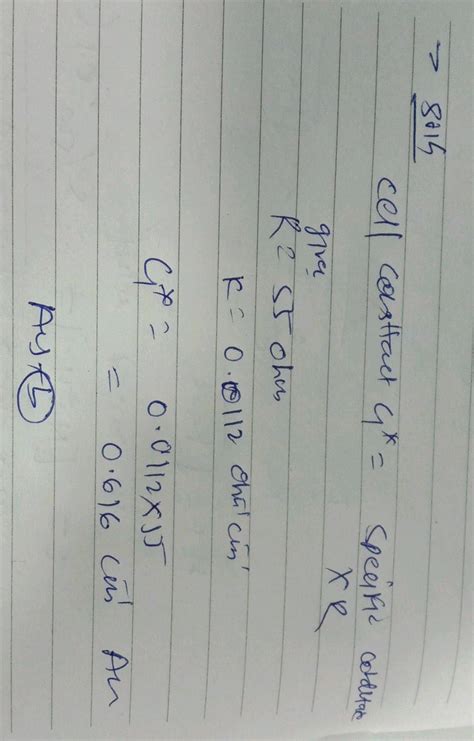 → Soln
cell constant G* = specific conduction
x R
given
R = 55 ohm
K = 0.0112 ohm⁻¹ cm⁻¹
G* = 0.0112 x 55
= 0.616 cm⁻¹ An
Ans (b)